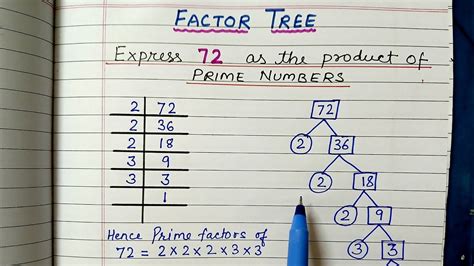 FACTOR TREE
Express 72 as the product of
PRIME NUMBERS
2 72
2 36
2 18
3 9
3 3
1
Hence Prime factors of
72 = 2×2×2×3×3
72
2 36
2 18
2 9
3 3